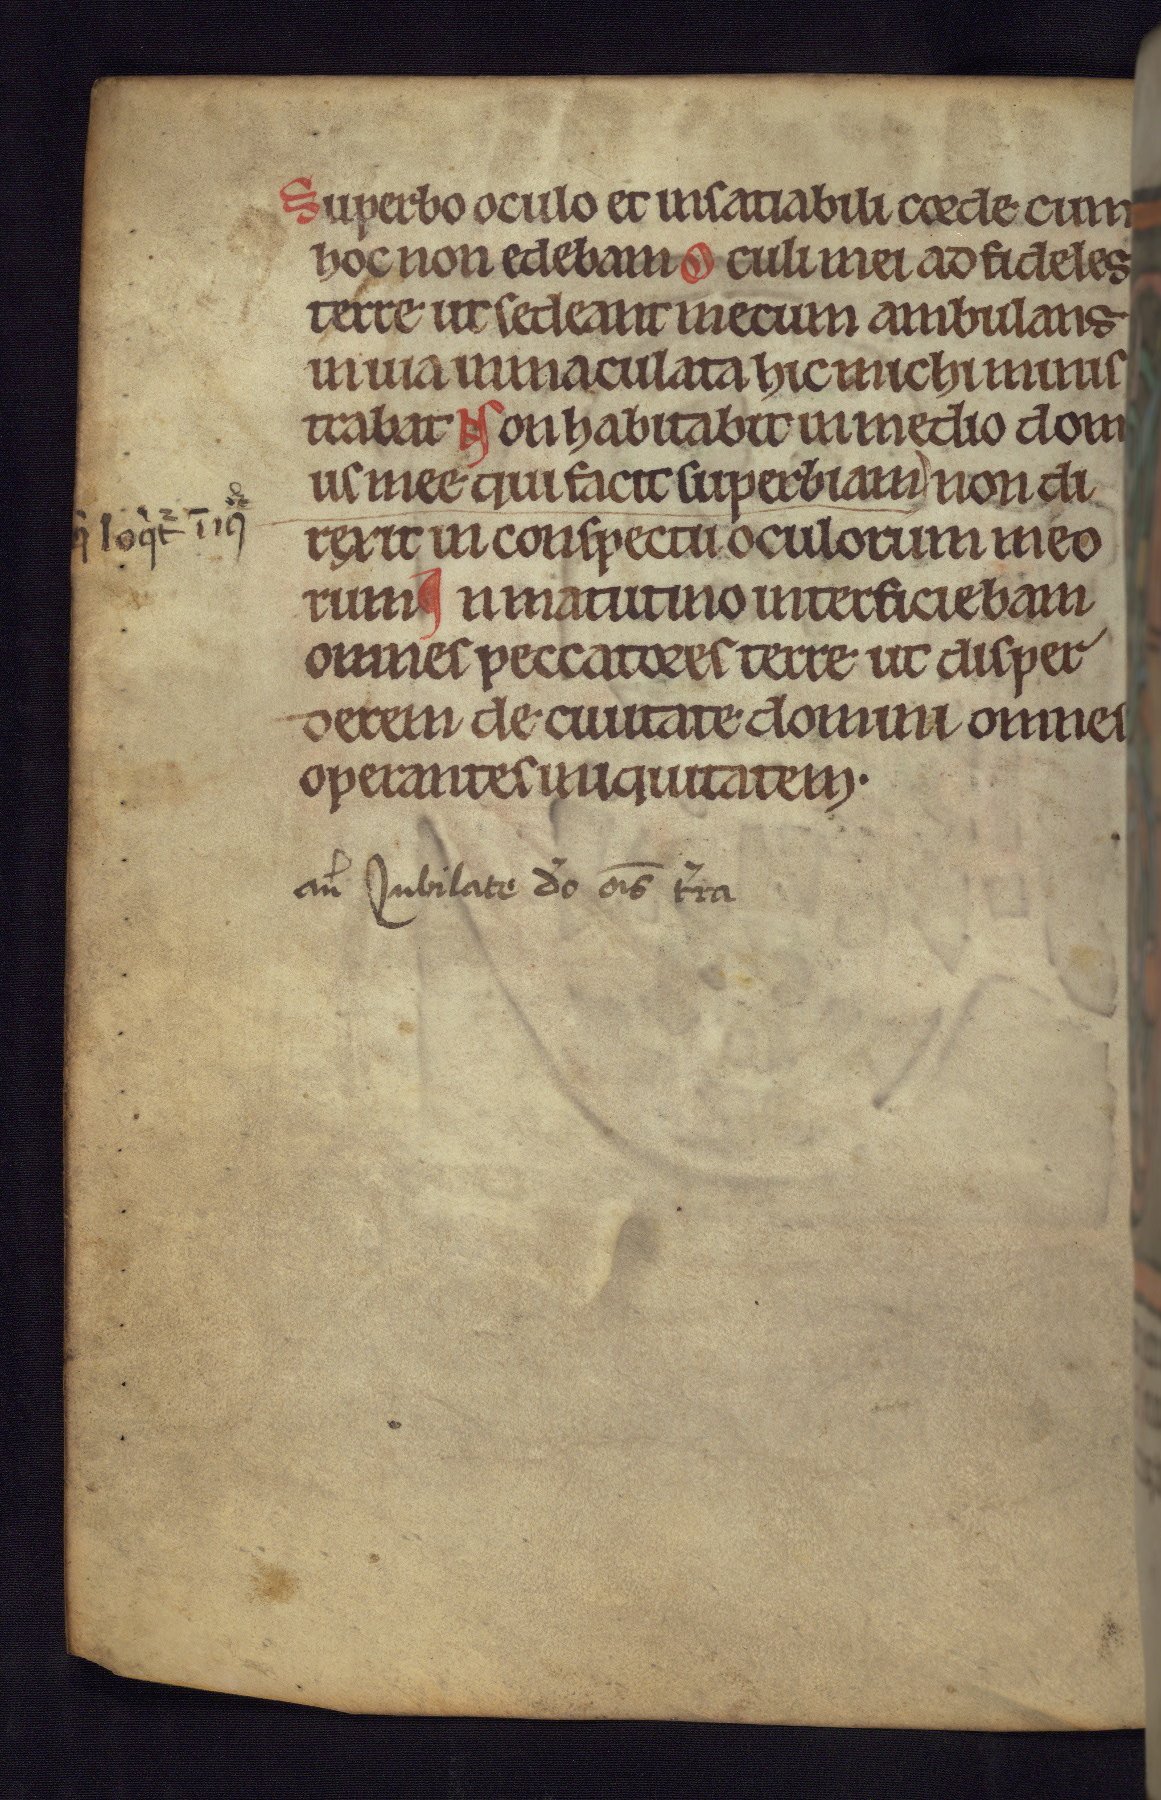 Superbo oculo et insatiabili corde cum
hoc non edebam Oculi mei ad fideles
terre ut sedeant mecum ambulans
in uia inmaculata hic michi minis
trabat Non habitabit in medio dom
us mee qui facit superbiam non di
rexit in conspectu oculorum meo
rum In matutino interficiebam
omnes peccatores terre ut disper
derem de ciuitate domini omnes
operantes iniquitatem.
añ Jubilate dõo oĩs t̃ra